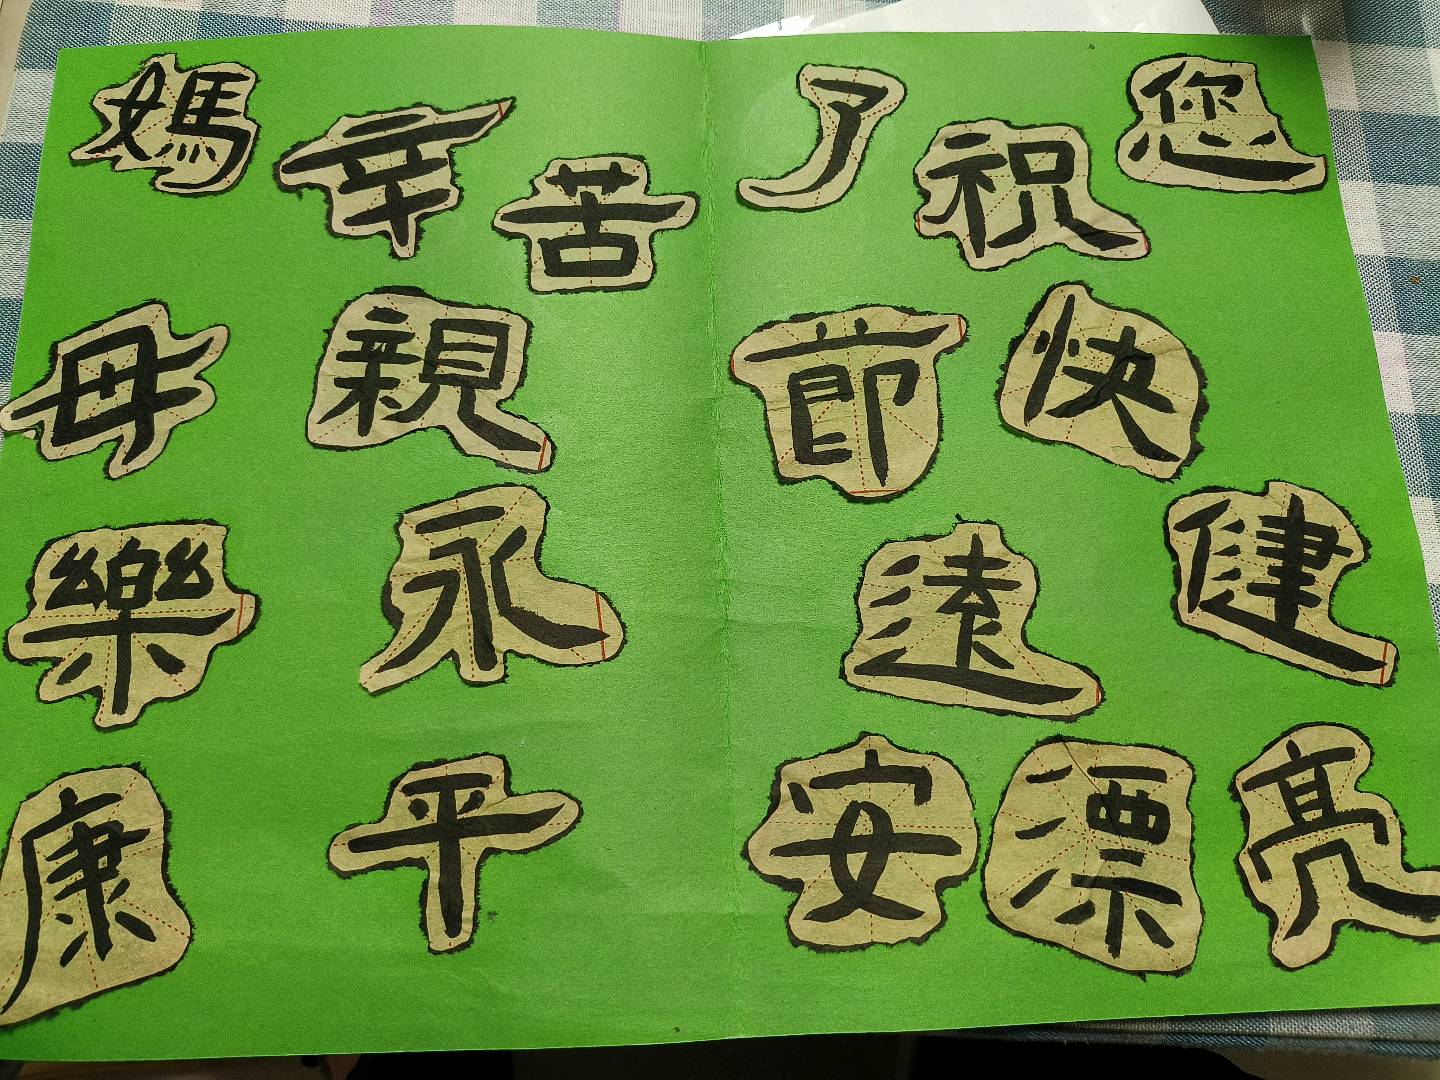 媽辛苦了祝您
母親節快
樂永遠健
康平安漂亮